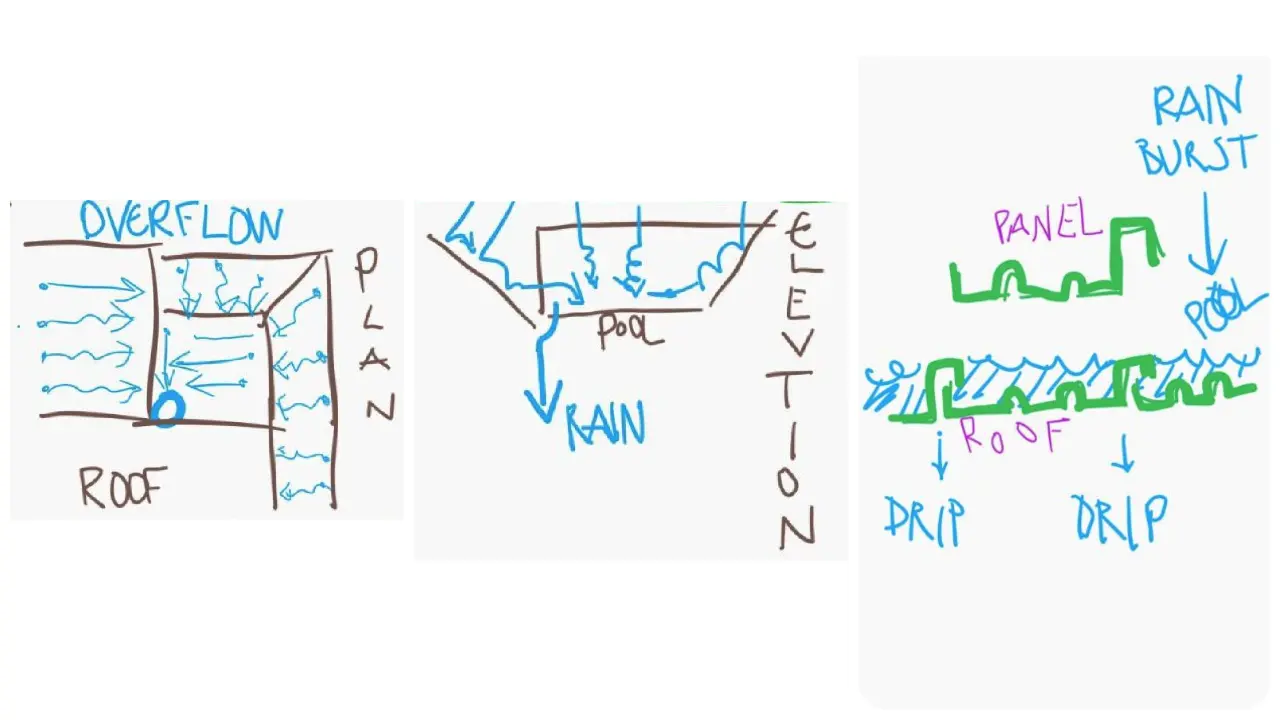 OVERFLOW
PLAN
ROOF
POOL
RAIN
ELEVTION
RAIN
BURST
PANEL
POOL
ROOF
DRIP
DRIP